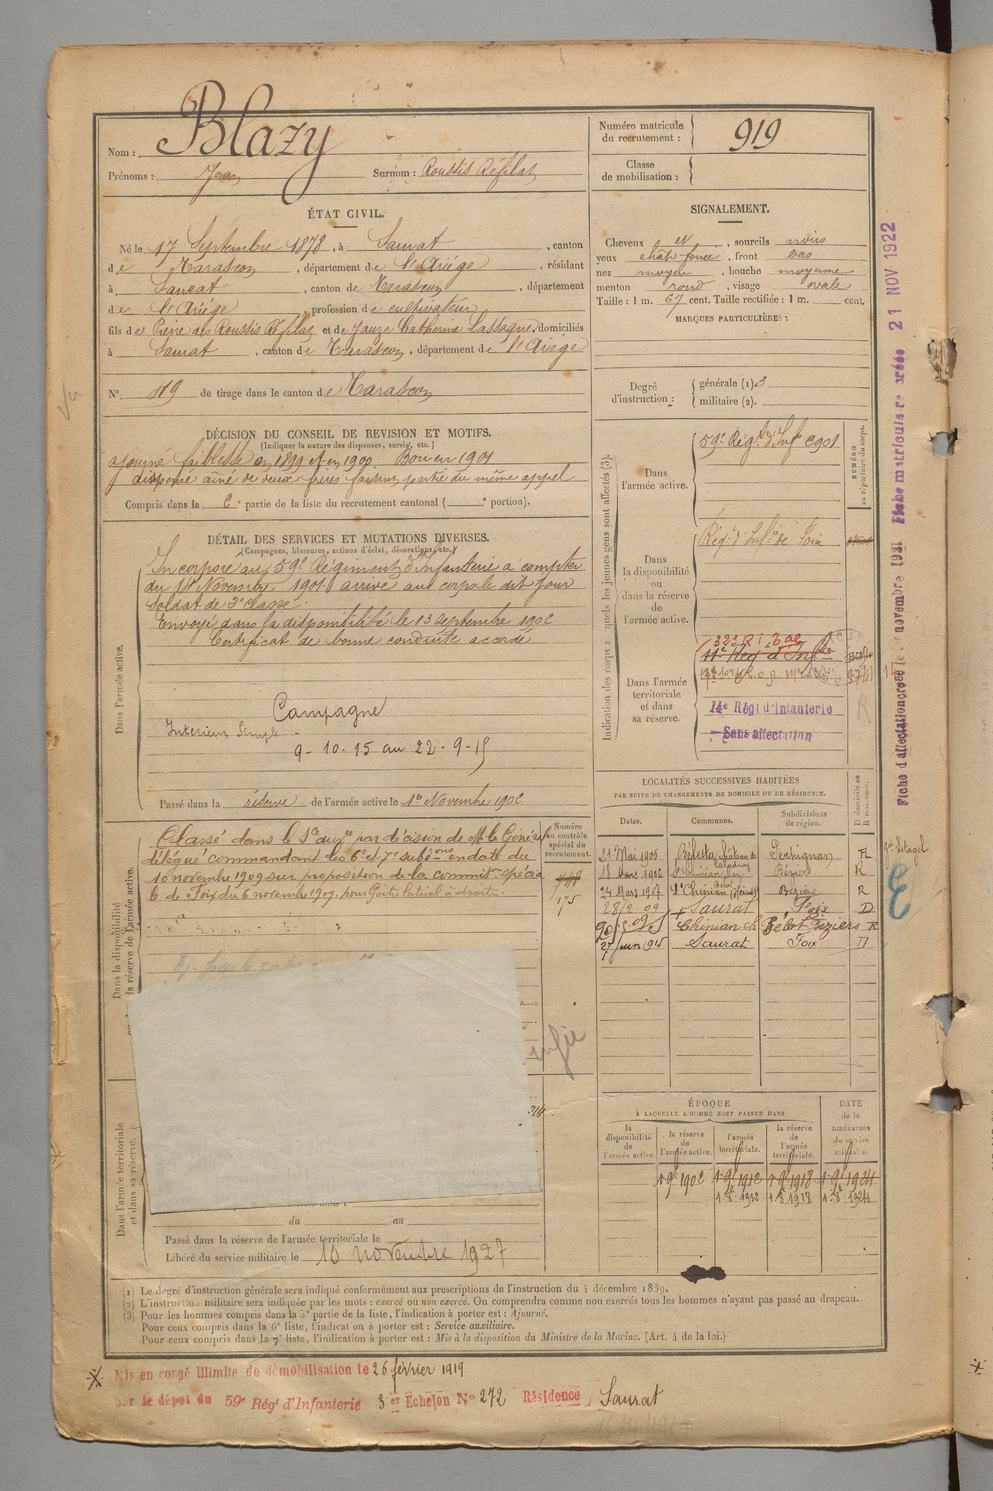 Nom : Blazy
Prénoms : Jean Surnom : Roussis Réfilat
Numéro matricule du recrutement : 919
Classe de mobilisation :
ÉTAT CIVIL.
Né le 17 Septembre 1878, à Saurat, canton
de Tarascon, département de l'Ariége, résidant
à Saurat, canton de Tarascon, département
de l'Ariége, profession de cultivateur
fils de Pierre dit Roussis Réfilat et de Jauze Catherine Lassagne, domiciliés
à Saurat, canton de Tarascon, département de l'Ariége
N° 49 de tirage dans le canton de Tarascon
SIGNALEMENT.
Cheveux et, sourcils noirs
yeux chât foncé, front bas
nez moyen, bouche moyenne
menton rond, visage ovale
Taille : 1 m. 67 cent. Taille rectifiée : 1 m. cent.
MARQUES PARTICULIÈRES :
Degré d'instruction : générale (1) 3
militaire (2).
DÉCISION DU CONSEIL DE REVISION ET MOTIFS.
(Indiquer la nature des dispenses, sursis, etc.)
ajourné faiblesse en 1899 et en 1900. Bon en 1901
dispensé aîné de deux frères faisant partie du même appel
Compris dans la 2e partie de la liste du recrutement cantonal ( e portion).
DÉTAIL DES SERVICES ET MUTATIONS DIVERSES.
(Campagnes, blessures, actions d'éclat, décorations, etc.)
Dans l'armée active.
Incorporé au 59e Régiment d'Infanterie à compter
du 14 Novembre 1901 arrivé au corps le dit jour
Soldat de 2e classe.
Envoyé dans la disponibilité le 13 Septembre 1902
Certificat de bonne conduite accordé
Campagne
Intérieur Simple -
9-10-15 au 22-9-15
Passé dans la réserve de l'armée active le 1er Novembre 1902
Indication des corps auxquels les jeunes gens sont affectés (3).
NUMÉRO au répertoire du corps.
Dans l'armée active.
59e Régt d'Inf 2901
Dans la disponibilité ou dans la réserve de l'armée active.
Régt d'Infie de Foix
Dans l'armée territoriale et dans sa réserve.
32e R i
11e Rég d'Inf
14e Régt d'Infanterie
Sans affectation
Dans la disponibilité
la réserve de l'armée active.
Classé dans le Sce auxre par décision de Mr le Général
délégué commandant les 6e et 7e subd-ons en date du
10 novembre 1909 sur proposition de la commissn spécia
le de Foix du 6 novembre 1909, pour Goître latéral à droite.
Numéro au contrôle spécial du recrutement.
748
175
LOCALITÉS SUCCESSIVES HABITÉES
PAR SUITE DE CHANGEMENTS DE DOMICILE OU DE RÉSIDENCE.
Dates. Communes. Subdivisions de région.
D domicile ou R résidence.
21 Mai 1905 Bélesta Perpignan R
18 Mars 1906 St Chinian Béziers R
24 Mars 1907 St Chinian Béziers R
28/2 09 Saurat Foix D
Chinian Béziers R
27 juin 1915 Saurat Foix D
ÉPOQUE
À LAQUELLE L'HOMME DOIT PASSER DANS
la disponibilité de l'armée active. la réserve de l'armée active. l'armée territoriale. la réserve de l'armée territoriale.
DATE de la LIBÉRATION du service militaire.
1 9bre 1902 1 9bre 1912 1 9bre 1918 1 9bre 1924
1 8bre 1912 1 8 1918 1 8bre 1924
Dans l'armée territoriale et dans sa réserve.
du au
Passé dans la réserve de l'armée territoriale le
Libéré du service militaire le 10 novembre 1927
(1) Le degré d'instruction générale sera indiqué conformément aux prescriptions de l'instruction du 4 décembre 1889.
(2) L'instruction militaire sera indiquée par les mots : exercé ou non exercé. On comprendra comme non exercés tous les hommes n'ayant pas passé au drapeau.
(3) Pour les hommes compris dans la 5e partie de la liste, l'indication à porter est : Ajourné.
Pour ceux compris dans la 6e liste, l'indication à porter est : Service auxiliaire.
Pour ceux compris dans la 7e liste, l'indication à porter est : Mis à la disposition du Ministre de la Marine. (Art. 4 de la loi.)
Mis en congé illimité de démobilisation le 26 février 1919
par le dépôt du 59e Régt d'Infanterie 3er Echelon N° 272 Résidence Saurat
Fiche d'affectation créée le novembre 1931 Fiche matricule créée 21 NOV 1922